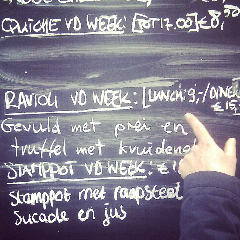 QUICHE VD WEEK: [TOT 17.00] €8,50
RAVIOLI VD WEEK: [LUNCH: 9,-/DINE
€15,
Gevuld met prei en
truffel met
STAMPPOT VD WEEK: €1
Stamppot met raapsteel
sucade en jus